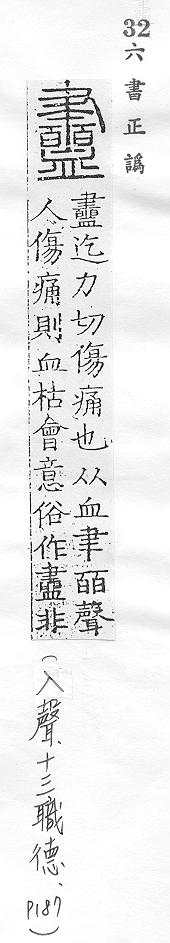 32
六書正譌
衋
衋迄力切傷痛也从血聿皕聲
人傷痛則血枯會意俗作非
(入聲、十三職德、P187)